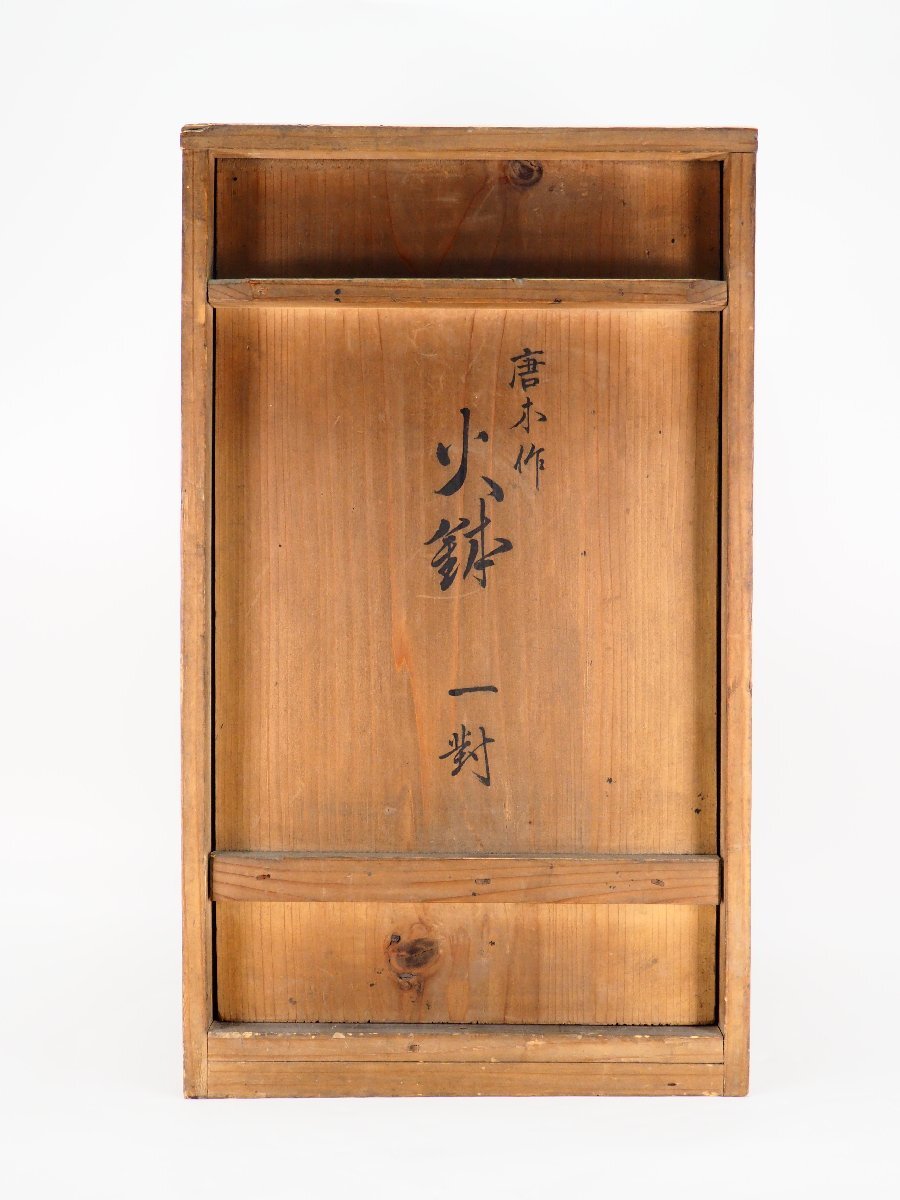 唐木作
火鉢
一對